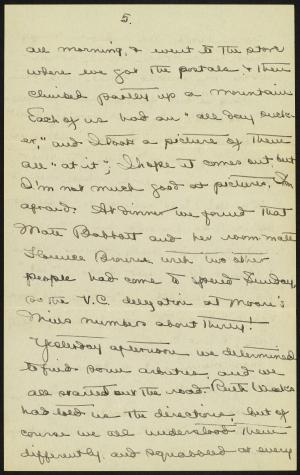 5.
all morning, & went to the store
where we got the postals & then
climbed partly up a mountain
Each of us had an "all day suck-
er," and I took a picture of them
all "at it"; I hope it comes out but
I'm not much good at pictures, I'm
afraid. At dinner we found that
Mate Babbott and her room-mate
Florence Brown, with two other
people had come to spend Sunday,
so the V.C. delegation at Moore's
Mills numbers about thirty!
Yesterday afternoon we determined
to find some arbutus, and we
all started out the road. Ruth
had told us the directions, but of
course we all understood them
differently, and squabbled at every